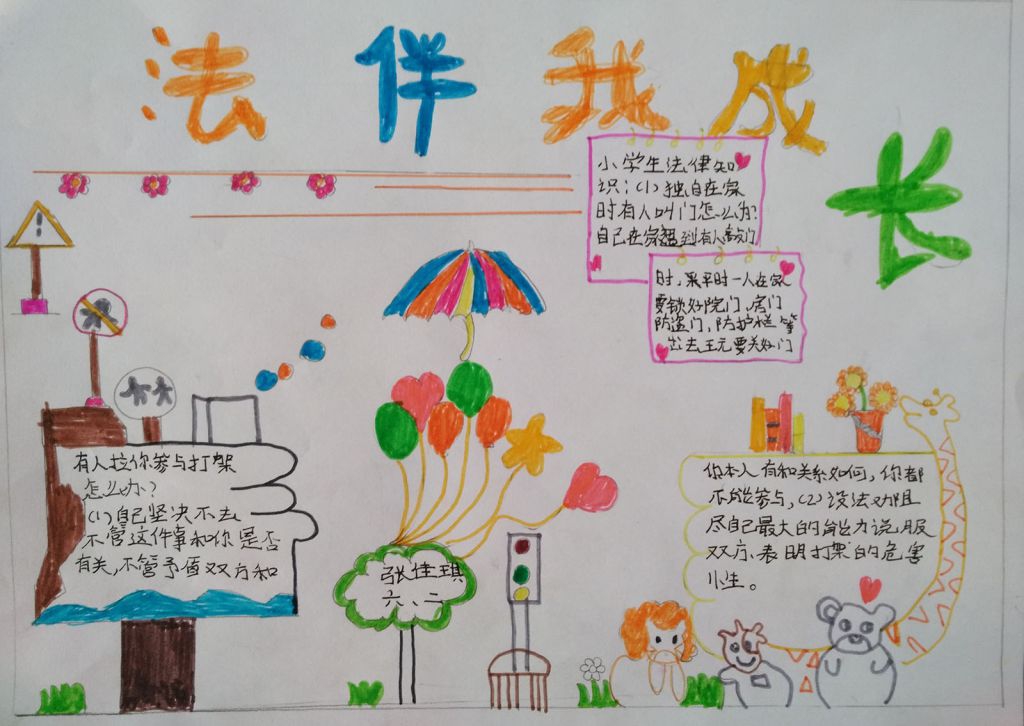 法伴我成长
小学生法律知
识：(1)独自在家
时有人叫门怎么办?
自己在家遇到有人敲门
时，果平时一人在家
要锁好院门，房门
防盗门，防护栏等
出去玩要关好门
有人拉你参与打架
怎么办?
(1)自己坚决不去
不管这件事和你是否
有关，不管于值双方和
你本人有和关系如何，你都
不能参与，(2)设法劝阻
尽自己最大的能力说服
双方，表明打架的危害
小生。
张佳琪
六、二